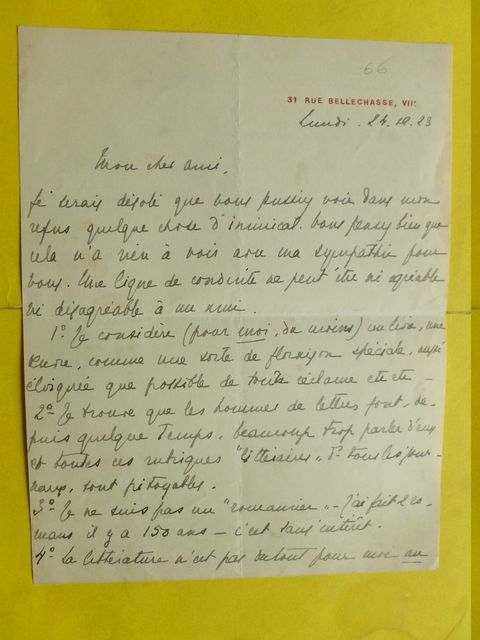 66
31 RUE BELLECHASSE, VIIe
Lundi. 24.12.23
Mon cher ami,
Je serais désolé que vous pussiez voir dans mon
refus quelque chose d'inimical. Vous pensez bien que
cela n'a rien à voir avec ma sympathie pour
vous. Une ligne de conduite ne peut être ni agréable
ni désagréable à un ami.
1º. Je considère (pour moi, du moins) un livre, une
œuvre, comme une sorte de floraison spéciale, aussi
éloignée que possible de toute réclame etc etc –
2º Je trouve que les hommes de lettres font, de-
puis quelque temps, beaucoup trop parler d'eux
et toutes ces rubriques "littéraires", de tous les jour-
naux, sont pitoyables.
3º Je ne suis pas un "romancier" – J'ai fait 2 ro-
mans il y a 150 ans – c'est sans intérêt.
4º La littérature n'est pas du tout pour moi un